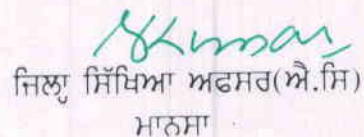 ਜਿਲ੍ਹਾ ਸਿੱਖਿਆ ਅਫਸਰ(ਐ.ਸਿ)
ਮਾਨਸਾ